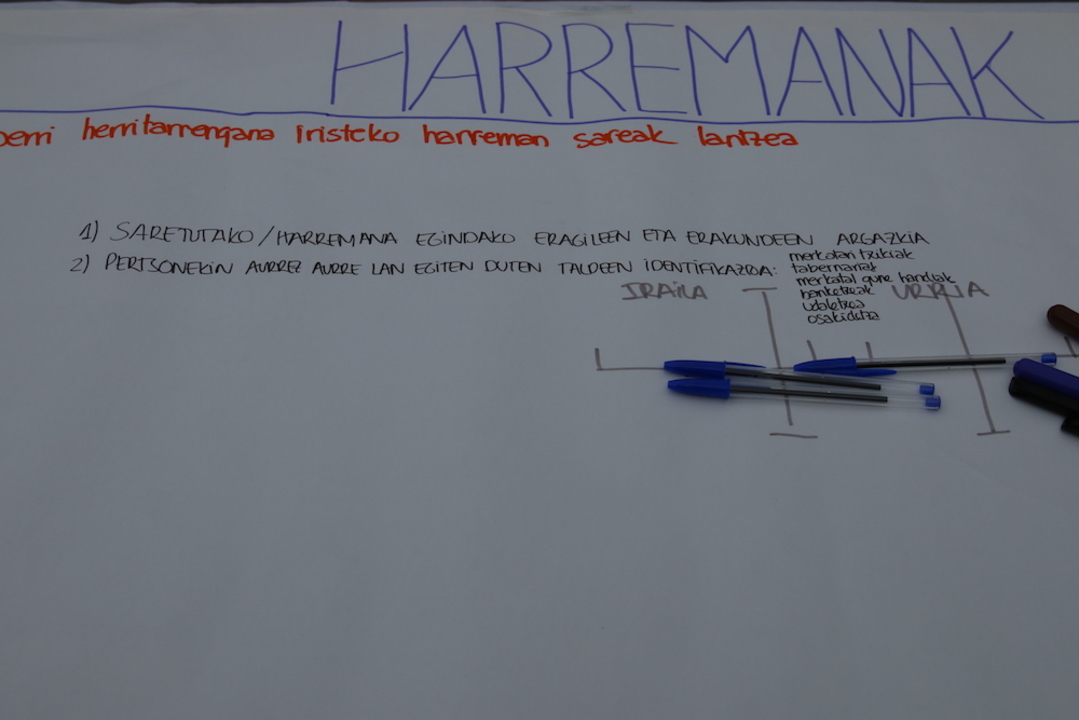 HARREMANAK
berri herritarrengana iristeko harreman sareak lantzea
1) SARETUTAKO / HARREMANA EGINDAKO ERAGILEEN ETA ERAKUNDEEN ARGAZKIA
2) PERTSONEKIN AURREZ AURRE LAN EGITEN DUTEN TALDEEN IDENTIFIKAZIOA:
merkatari txikiak
tabernariak
merkatal gune handiak
banketxeak
udaletxea
osakidetza
IRAILA URRIA